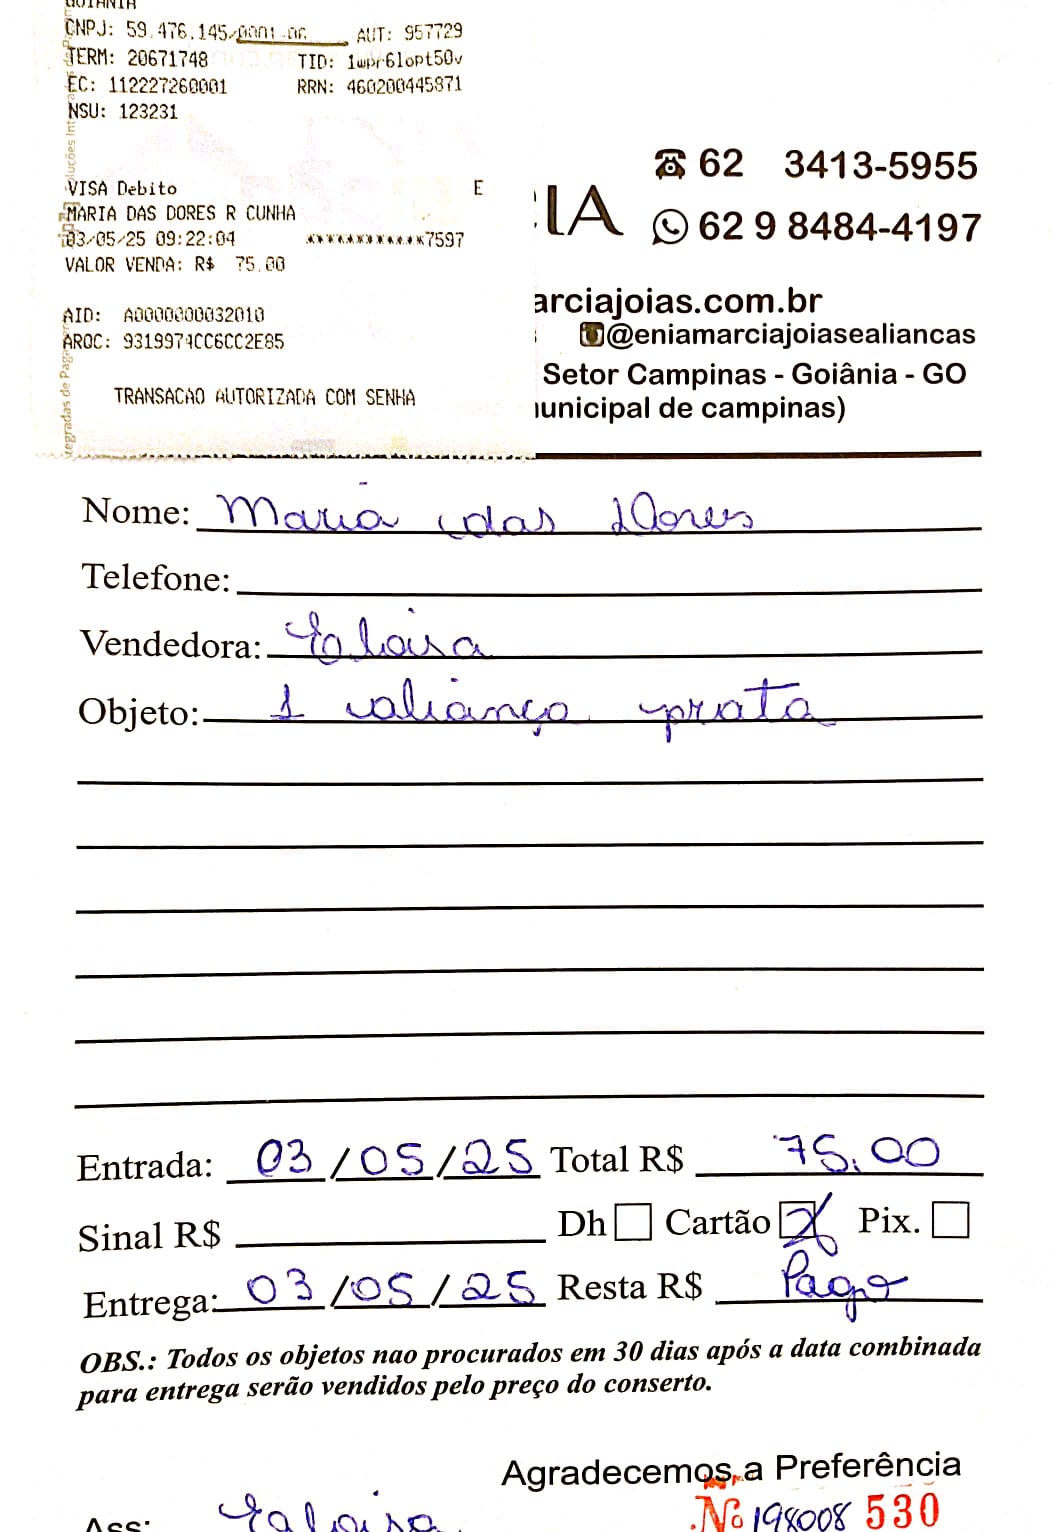 GOIANIA
CNPJ: 59.476.145/0001-06 AUT: 957729
TERM: 20671748 TID: 1wpr6lopt50v
EC: 112227260001 RRN: 460200445871
NSU: 123231
VISA Debito E
MARIA DAS DORES R CUNHA
03/05/25 09:22:04 ************7597
VALOR VENDA: R$ 75.00
AID: A0000000032010
ARQC: 9319974CC6CC2E85
TRANSACAO AUTORIZADA COM SENHA
tegradas de Pag
luções Int
62 3413-5955
CIA 62 9 8484-4197
arciajoias.com.br
@eniamarciajoiasealiancas
Setor Campinas - Goiânia - GO
unicipal de campinas)
Nome: Maria das Dores
Telefone:
Vendedora: Eloisa
Objeto: 1 aliança prata
Entrada: 03/05/25 Total R$ 75,00
Sinal R$ Dh Cartão X Pix.
Entrega: 03/05/25 Resta R$ Pago
OBS.: Todos os objetos nao procurados em 30 dias após a data combinada
para entrega serão vendidos pelo preço do conserto.
Agradecemos a Preferência
Ass: Eloisa Nº 198008 530